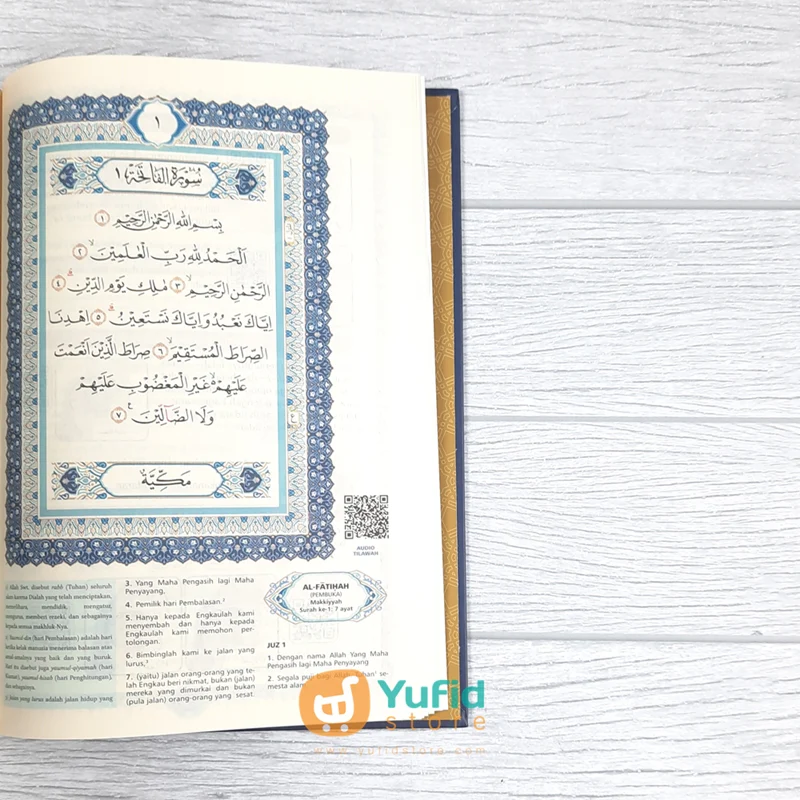 ١
سُوْرَةُ الْفَاتِحَةِ ١
بِسْمِ اللّٰهِ الرَّحْمٰنِ الرَّحِيْمِ ١
اَلْحَمْدُ لِلّٰهِ رَبِّ الْعٰلَمِيْنَۙ ٢
الرَّحْمٰنِ الرَّحِيْمِۙ ٣ مٰلِكِ يَوْمِ الدِّيْنِۗ ٤
اِيَّاكَ نَعْبُدُ وَاِيَّاكَ نَسْتَعِيْنُۗ ٥ اِهْدِنَا
الصِّرَاطَ الْمُسْتَقِيْمَۙ ٦ صِرَاطَ الَّذِيْنَ اَنْعَمْتَ
عَلَيْهِمْ ەۙ غَيْرِ الْمَغْضُوْبِ عَلَيْهِمْ
وَلَا الضَّاۤلِّيْنَ ࣖ ٧
مَكِّيَّةٌ
AUDIO
TILAWAH
AL-FĀTIḤAH
(PEMBUKA)
Makkiyyah
Surah ke-1: 7 ayat
JUZ 1
1. Dengan nama Allah Yang Maha
Pengasih lagi Maha Penyayang
2. Segala puji bagi Allah, Tuhan¹ se-
mesta alam
3. Yang Maha Pengasih lagi Maha
Penyayang,
4. Pemilik hari Pembalasan.²
5. Hanya kepada Engkaulah kami
menyembah dan hanya kepada
Engkaulah kami memohon per-
tolongan.
6. Bimbinglah kami ke jalan yang
lurus,³
7. (yaitu) jalan orang-orang yang te-
lah Engkau beri nikmat, bukan (jalan)
mereka yang dimurkai dan bukan
(pula jalan) orang-orang yang sesat.
Allah Swt. disebut rabb (Tuhan) seluruh
alam karena Dialah yang telah menciptakan,
memelihara, mendidik, mengatur,
mengurus, memberi rezeki, dan sebagainya
kepada semua makhluk-Nya.
Yaumud-dīn (hari Pembalasan) adalah hari
ketika kelak manusia menerima balasan atas
amal-amalnya yang baik dan yang buruk.
Hari itu disebut juga yaumul-qiyāmah (hari
Kiamat), yaumul-ḥisāb (hari Penghitungan),
dan sebagainya.
Jalan yang lurus adalah jalan hidup yang
Yufid
store
www.yufidstore.com